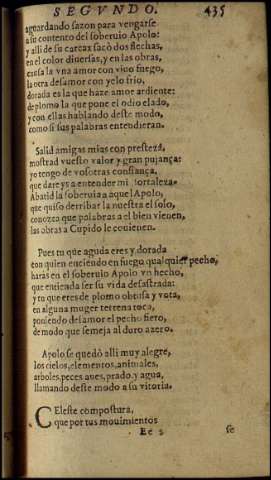 SEGVNDO. 435
aguardando sazon para vengarse
a su contento del soberuio Apolo:
y alli de su carcax sacò dos flechas,
en el color diuersas, y en las obras,
causa la vna amor con viuo fuego,
la otra desamor con yelo frio,
dorada es la que haze amor ardiente:
de plomo la que pone el odio elado,
y con ellas hablando deste modo,
como si sus palabras entendieran.
Salid amigas mias con presteza,
mostrad vuesto valor y gran pujança:
yo tengo de vosotras confiança,
que dareys a entender mi fortaleza.
Abatid la soberuia a aquel Apolo,
que quiso derribar la nuestra el solo,
conozca que palabras a el bien vienen,
las obras a Cupido le conienen.
Pues tu que aguda eres y dorada
con quien enciendo en fuego qual quier pecho,
haràs en el soberuio Apolo vn hecho,
que entienda ser su vida desastrada:
y tu que eres de plomo obtusa y vota,
en alguna muger terrena toca,
poniendo desamor el pecho fiero,
de modo que semeja al duro azero.
Apolo se quedò alli muy alegre,
los cielos, elementos, animales,
arboles, peces aues, prado, y agua,
llamando deste modo a su vitoria.
CEleste compostura,
que por tus mouimientos
Ee 2 se